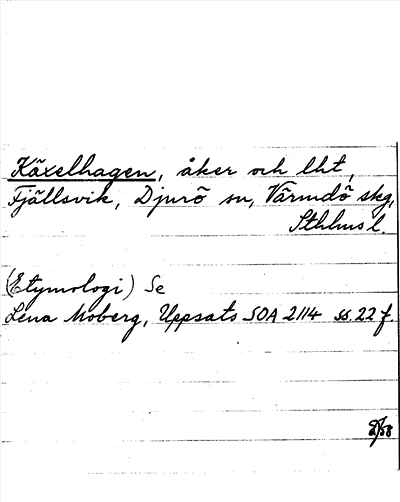 Käxelhagen, åker och lht,
Fjällsvik, Djurö sn, Värmdö skg,
Sthlms l.
(Etymologi) Se
Lena Moberg, Uppsats SOA 2114 ss. 22 f.